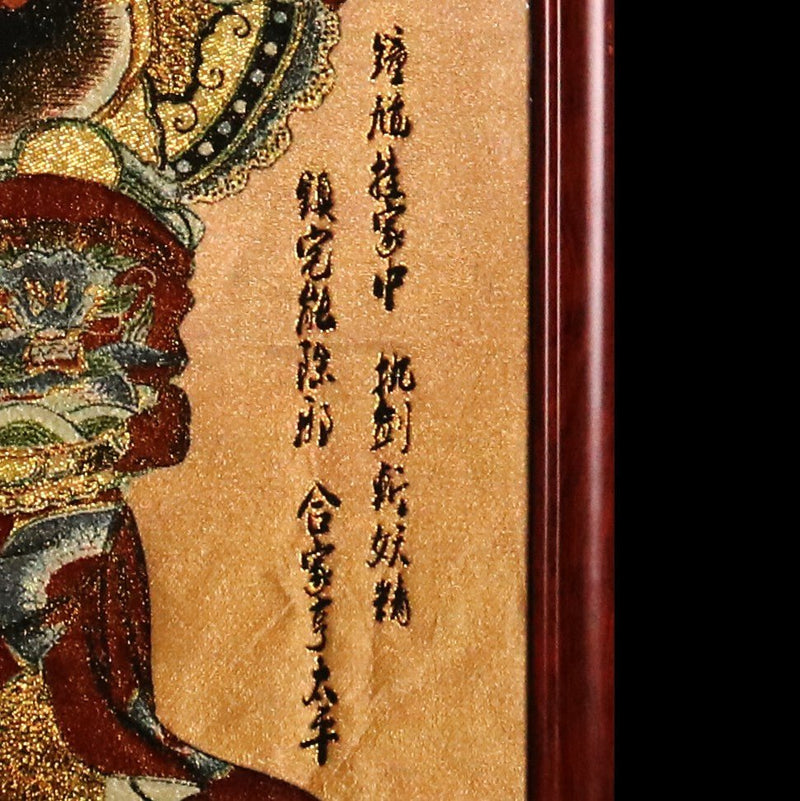 鐘馗挂家中 挑劍斬妖精
鎮宅能除邪 合家享太平